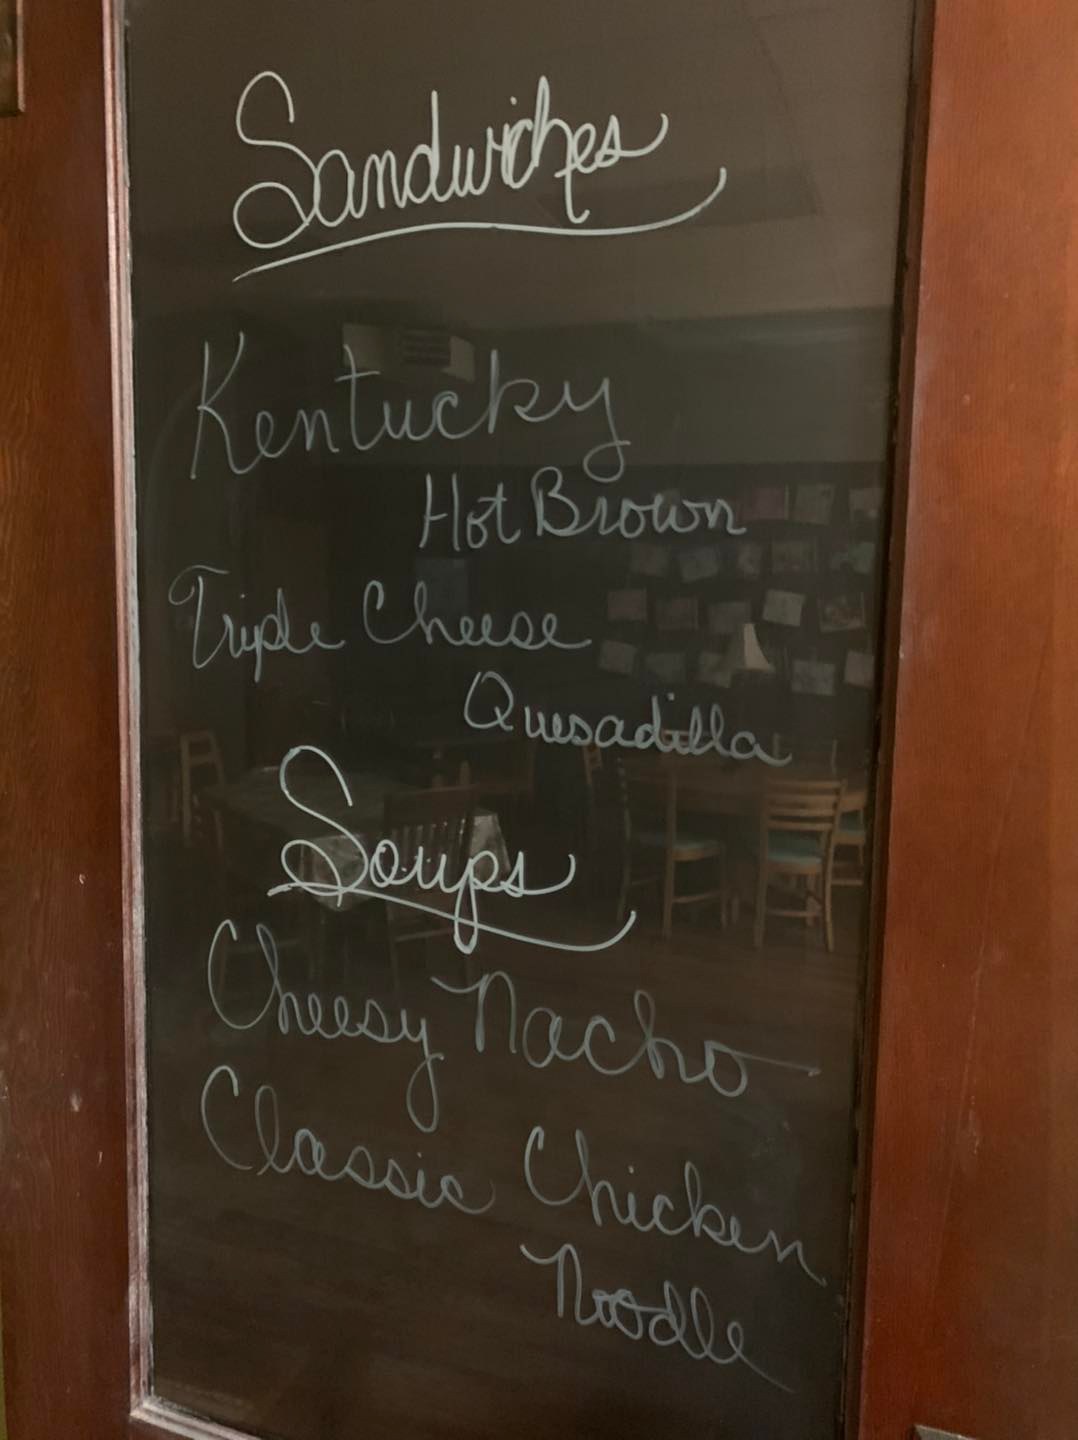 Sandwiches
Kentucky
Hot Brown
Triple Cheese
Quesadilla
Soups
Cheesy Nacho
Classic Chicken
Noodle